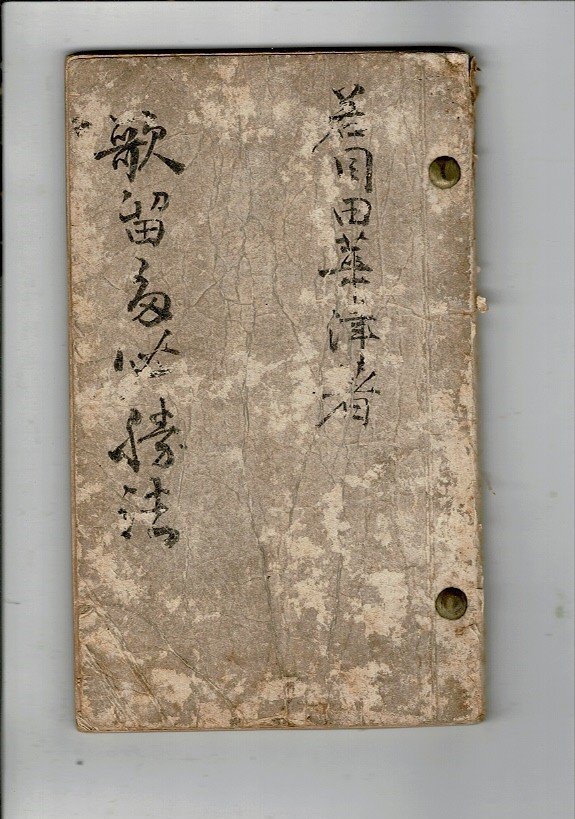 若目田華津著
歌留多必勝法